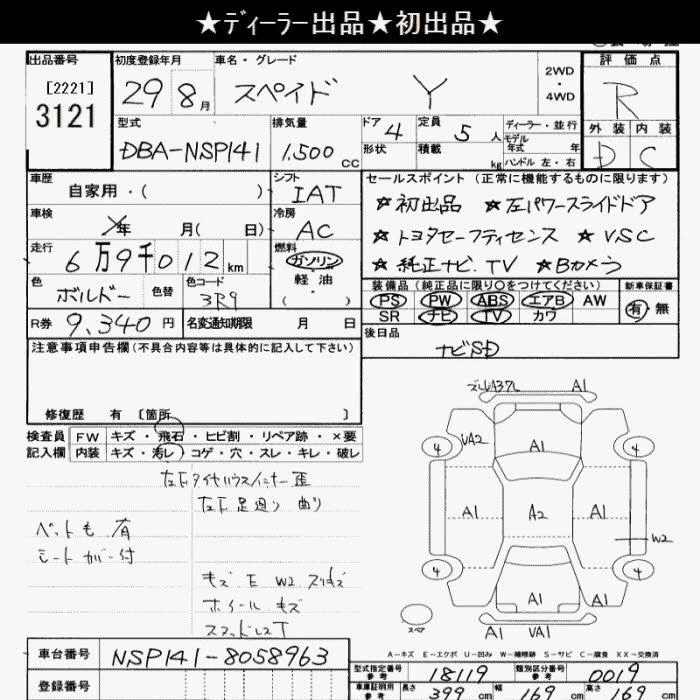 ★ディーラー出品★初出品★
出品番号 初度登録年月 車名・グレード 評価点
[2221]
3121
29 8月 スペイド Y
2WD
・
4WD
R
外装 内装
D C
型式 排気量 ドア 4 定員 5人 ディーラー・並行
モデル年式 年
形状 積載 kg ハンドル 左・右
DBA-NSP141 1,500cc
車歴 自家用・( )
シフト IAT
セールスポイント(正常に機能するものに限ります)
☆初出品 ☆左パワースライドドア
☆トヨタセーフティセンス ☆VSC
☆純正ナビ.TV ☆Bカメラ
車検 年 月( 日)
冷房 AC
走行 6万9千012km
燃料 ガソリン
軽・油
( )
色 ボルドー 色替 色コード 3R9
装備品(純正品に限り○をつけてください) 新車保証書
PS PW ABS エアB AW 有 無
SR ナビ TV カワ
R券 9,340円 名変通知期限 月 日
後日品
ナビSD
注意事項申告欄(不具合内容等は具体的に記入して下さい)
修復歴 有 〔箇所 〕
検査員 FW キズ・飛石・ヒビ割・リペア跡・×要
記入欄 内装 キズ・汚レ・コゲ・穴・スレ・キレ・破レ
左Fタイヤハウスインナー歪
左F足廻り 曲り
ペットも 有
シートカバー付
キズ E W2 スリキズ
ホイール キズ
スタッドレスT
A1
VA2
A1
4 4
A1 A2 A1
W2
4 4
A1 A1
A1 VA1
スペア
A-キズ E-エクボ U-凹み W-補修跡 S-サビ C-腐食 XX-交換済
車台番号 NSP141-8058963
登録番号
型式指定番号 参考 18119 類別区分番号 参考 0019
車庫証明用 参考 長さ 399cm 幅 169cm 高さ 169cm